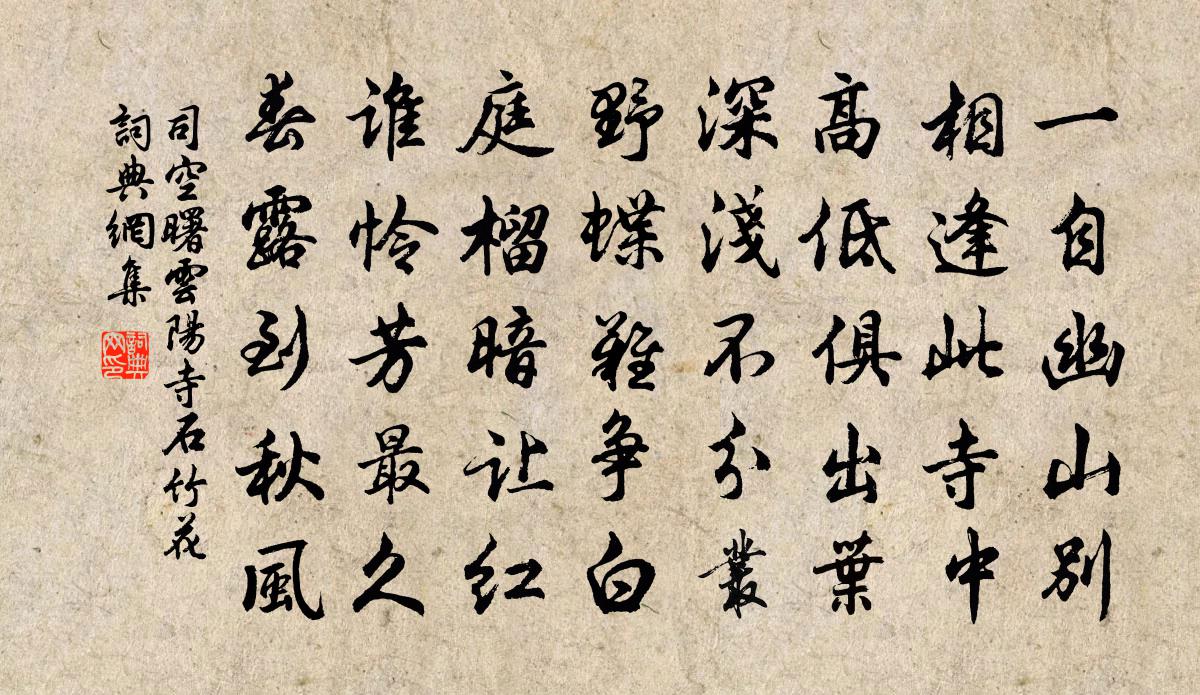 一自幽山别
相逢此寺中
高低俱出葉
深淺不分叢
野蝶難争白
庭榴暗让红
谁怜芳最久
春露到秋風
司空曙雲陽寺石竹花
詞典網集
詞典网印